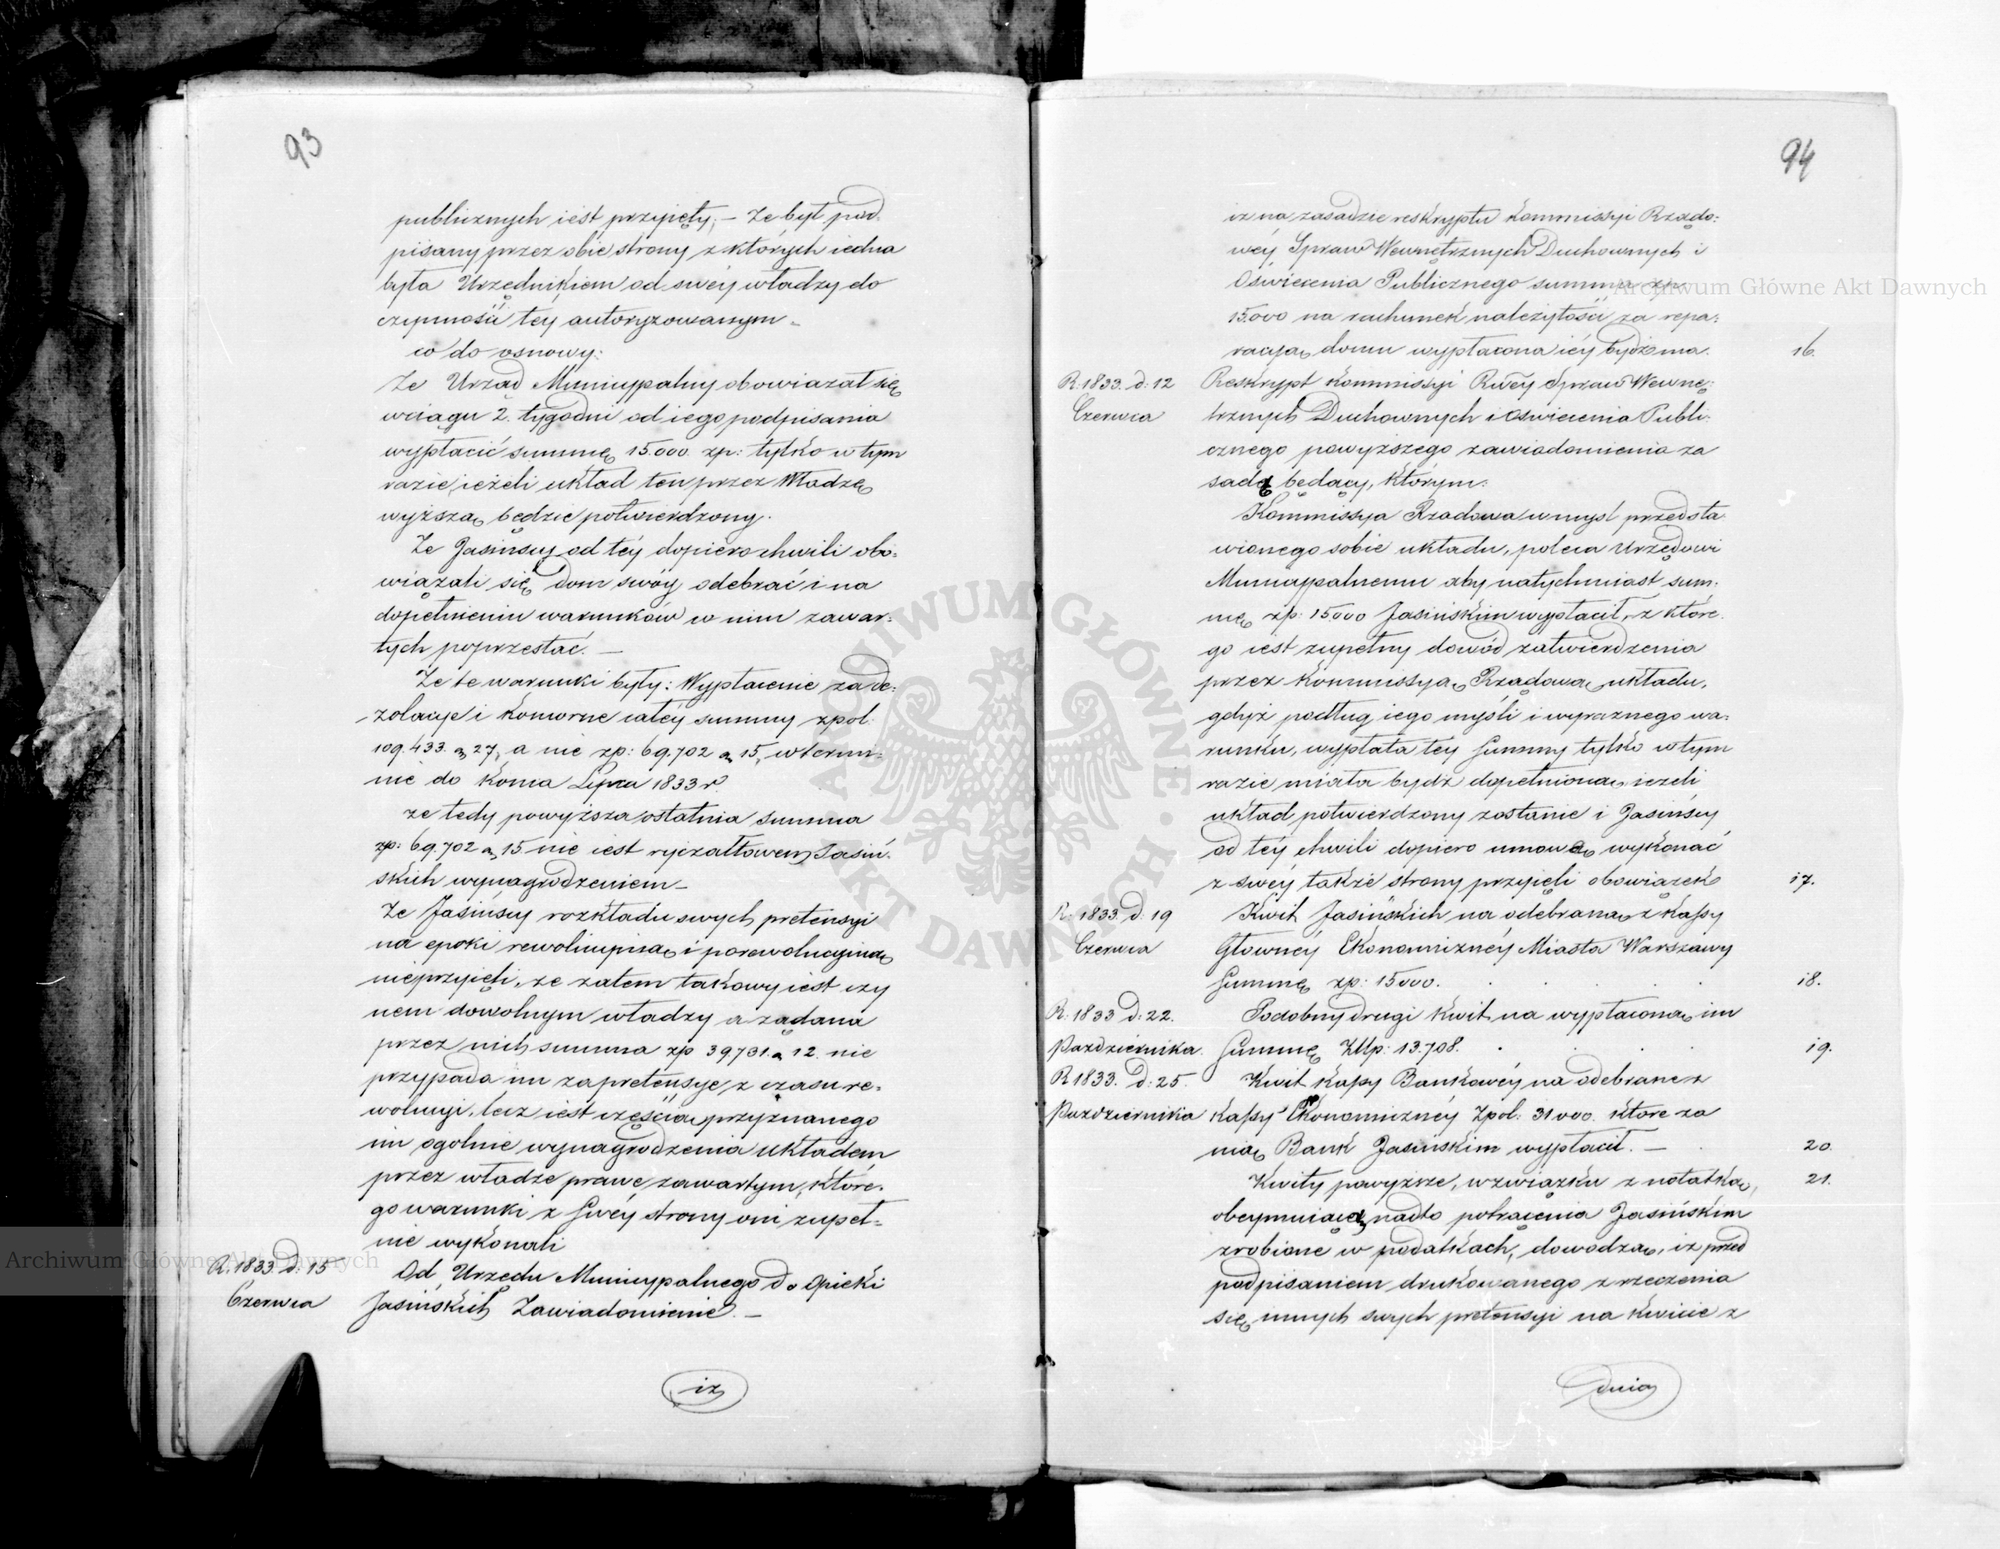 93
publicznych iest przyięty; – Że był pod-
pisany przez obie strony z których iedna
była Urzędnikiem od swéy władzy do
czynności téy autoryzowanym –
co do osnowy:
Że Urząd Municypalny obowiązał się
wciągu 2. tygodni od iego podpisania
wypłacić summę 15.000 zp: tylko w tym
razie, ieżeli układ ten przez Władzę
wyższą będzie potwierdzony.
Że Jasińscy od téy dopiero chwili obo-
wiązali się dom swóy odebrać i na
dopełnieniu warunków w nim zawar-
tych poprzestać. –
Że te warunki były: Wypłacenie za de-
zolacye i komorne całéy summy zpol.
109.433. g 27, a nie zp: 69.702 g 15, w termi-
nie do końca Lipca 1833 r.
że tedy powyższa ostatnia summa
zp: 69.702 g 15 nie iest ryczałtowem Jasiń-
skich wynagrodzeniem –
Że Jasińscy rozkładu swych pretensyi
na epoki rewolucyiną i porewolucyiną
nieprzyięli, że zatem takowy iest czy
nem dowolnym władzy a żądana
przez nich summa zp 39731. g 12. nie
przypada im za pretensye z czasu re-
wolucyi, lecz iest częścią przyznanego
im ogólnie wynagrodzenia układem
przez władze prawe zawartym, które-
go warunki z swéy strony oni zupeł-
nie wykonali
R. 1833. d. 15
Czerwca
Od Urzędu Municypalnego do Opieki
Jasińskich Zawiadomienie. –
iż
94
iż na zasadzie reskryptu Kommissyi Rządo-
wéy Spraw Wewnętrznych Duchownych i
Oświecenia Publicznego summa zp.
15.000 na rachunek należytości za repa-
racyą domu wypłacona iéy bydź ma. 16.
R. 1833. d. 12
Czerwca
Reskrypt Kommissyi Rwéy Spraw Wewnę-
trznych Duchownych i Oświecenia Publi-
cznego powyższego zawiadomienia za
sadą będący, którym:
Kommissya Rządowa w myśl przedsta
wionego sobie układu, poleca Urzędowi
Municypalnemu aby natychmiast sum-
mę zp: 15000 Jasińskim wypłacił, z które-
go iest zupełny dowód zatwierdzenia
przez Kommissyą Rządową układu,
gdyż podług iego myśli i wyraznego wa-
runku, wypłata téy summy tylko w tym
razie miała bydź dopełnioną, ieżeli
układ potwierdzony zostanie i Jasińscy
od téy chwili dopiero umowę wykonać
z swéy także strony przyięli obowiązek 17.
R. 1833. d. 19
Czerwca
Kwit Jasińskich na odebraną z Kassy
Głownéy Ekonomicznéy Miasta Warszawy
Summę zp: 15000. 18.
R. 1833 d. 22.
Października.
Podobny drugi Kwit na wypłaconą im
Summę Złlp: 13.708. 19.
R 1833. d. 25.
Października
Kwit Kassy Bankowéy na odebrane z
Kassy Ekonomicznéy Zpol: 31000. które za
nią Bank Jasińskim wypłacił. – 20.
Kwity powyższe, w związku z notatką, 21.
obeymuiącą nadto potrącenia Jasińskim
zrobione w podatkach, dowodzą, iż przed
podpisaniem drukowanego zrzeczenia
się innych swych pretensyi na kwicie z
dnia
Archiwum Główne Akt Dawnych
Archiwum Główne Akt Dawnych
ARCHIWUM GŁÓWNE · AKT DAWNYCH ·